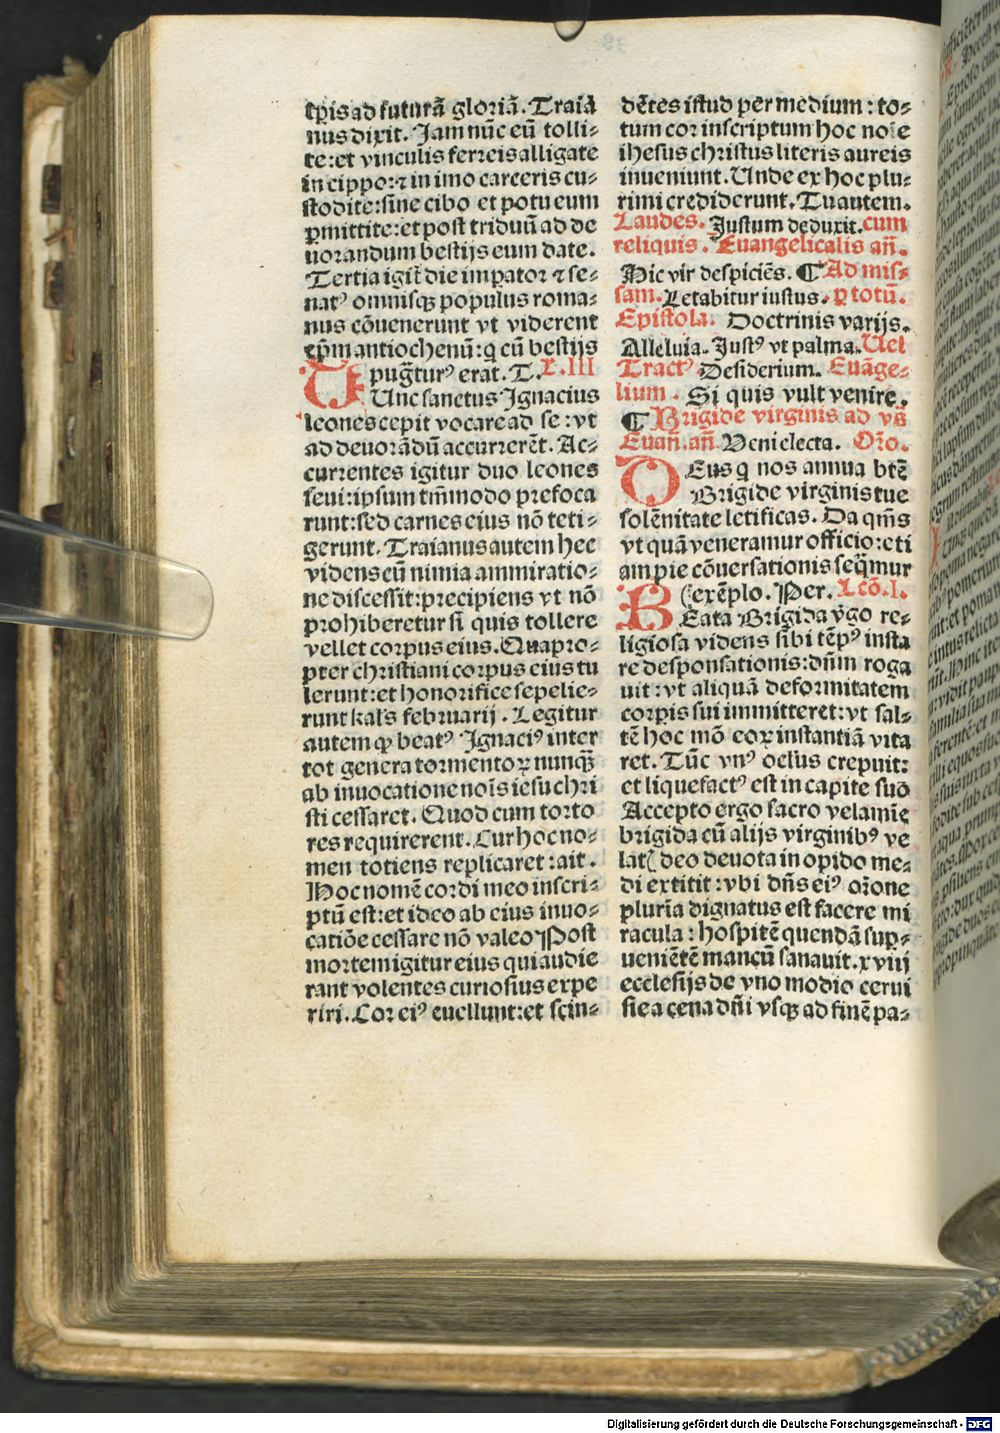 tp̄is ad futurā gloriā. Traiā
nus dixit. Jam nūc eū tolli⸗
te: et vinculis ferreis alligate
in cippo: ⁊ in imo carceris cu⸗
stodite: sine cibo et potu eum
ꝑmittite: et post triduū ad de
uorandum bestijs eum date.
Tertia igit̄ die imꝑator ⁊ se⸗
natꝰ omnisqꝫ populus roma⸗
nus cōuenerunt vt viderent
ep̄m antiochenū: q̄ cū bestijs
pugt̄urꝰ erat. T. L. III
Unc sanctus Ignacius
leones cepit vocare ad se: vt
ad deuorādū accurrerēt. Ac⸗
currentes igitur duo leones
seui: ipsum tm̄modo prefoca
runt: sed carnes eius nō teti⸗
gerunt. Traianus autem hec
videns eū nimia ammiratio⸗
ne discessit: precipiens vt nō
prohiberetur si quis tollere
vellet corpus eius. Quapro⸗
pter christiani corpus eius tu
lerunt: et honorifice sepelie⸗
runt kal's februarij. Legitur
autem qꝫ beatꝰ Ignaciꝰ inter
tot genera tormentoꝝ nunqꝫ̄
ab inuocatione noīs iesu chri
sti cessaret. Quod cum torto
res requirerent. Cur hoc no⸗
men totiens replicaret: ait.
Hoc nomē cordi meo inscri⸗
ptū est: et ideo ab eius inuo⸗
catiōe cessare nō valeo Post
mortem igitur eius qui audie
rant volentes curiosius expe
riri. Cor eiꝰ euellunt: et scin⸗
dētes istud per medium: to⸗
tum cor inscriptum hoc noīe
ihesus christus literis aureis
inueniunt. Unde ex hoc plu⸗
rimi crediderunt. Tu autem.
Laudes. Justum deduxit. cum
reliquis. Euangelicalis añ.
Hic vir despiciēs. ¶ Ad mis⸗
sam. Letabitur iustus. ꝑ totū.
Epistola. Doctrinis varijs.
Alleluia. Justꝰ vt palma. Uel
Tractꝰ Desiderium. Euāge⸗
lium. Si quis vult venire.
¶ Brigide virginis ad vs̄
Euañ. añ. Veni electa. Orō.
DEus q̄ nos annua btē
Brigide virginis tue
solēnitate letificas. Da qm̄s
vt quā veneramur officio: eti
am pie cōuersationis seq̄mur
(exēplo. Per. Lcō. I.
BEata Brigida v̄go re⸗
ligiosa videns sibi tēpꝰ insta
re desponsationis: dn̄m roga
uit: vt aliquā deformitatem
corꝑis sui immitteret: vt sal⸗
tē hoc mō eoꝝ instantiā vita
ret. Tūc vnꝰ ocl'us crepuit:
et liquefactꝰ est in capite suo
Accepto ergo sacro velamīe
brigida cū alijs virginibꝰ ve
lat( deo deuota in opido me⸗
di extitit: vbi dn̄s eiꝰ orōne
pluria dignatus est facere mi
racula: hospitē quendā suꝑ⸗
uenietē mancū sanauit. xviij
ecclesijs de vno modio cerui
sie a cena dn̄i vsqꝫ ad finē pa⸗
Digitalisierung gefördert durch die Deutsche Forschungsgemeinschaft - DFG